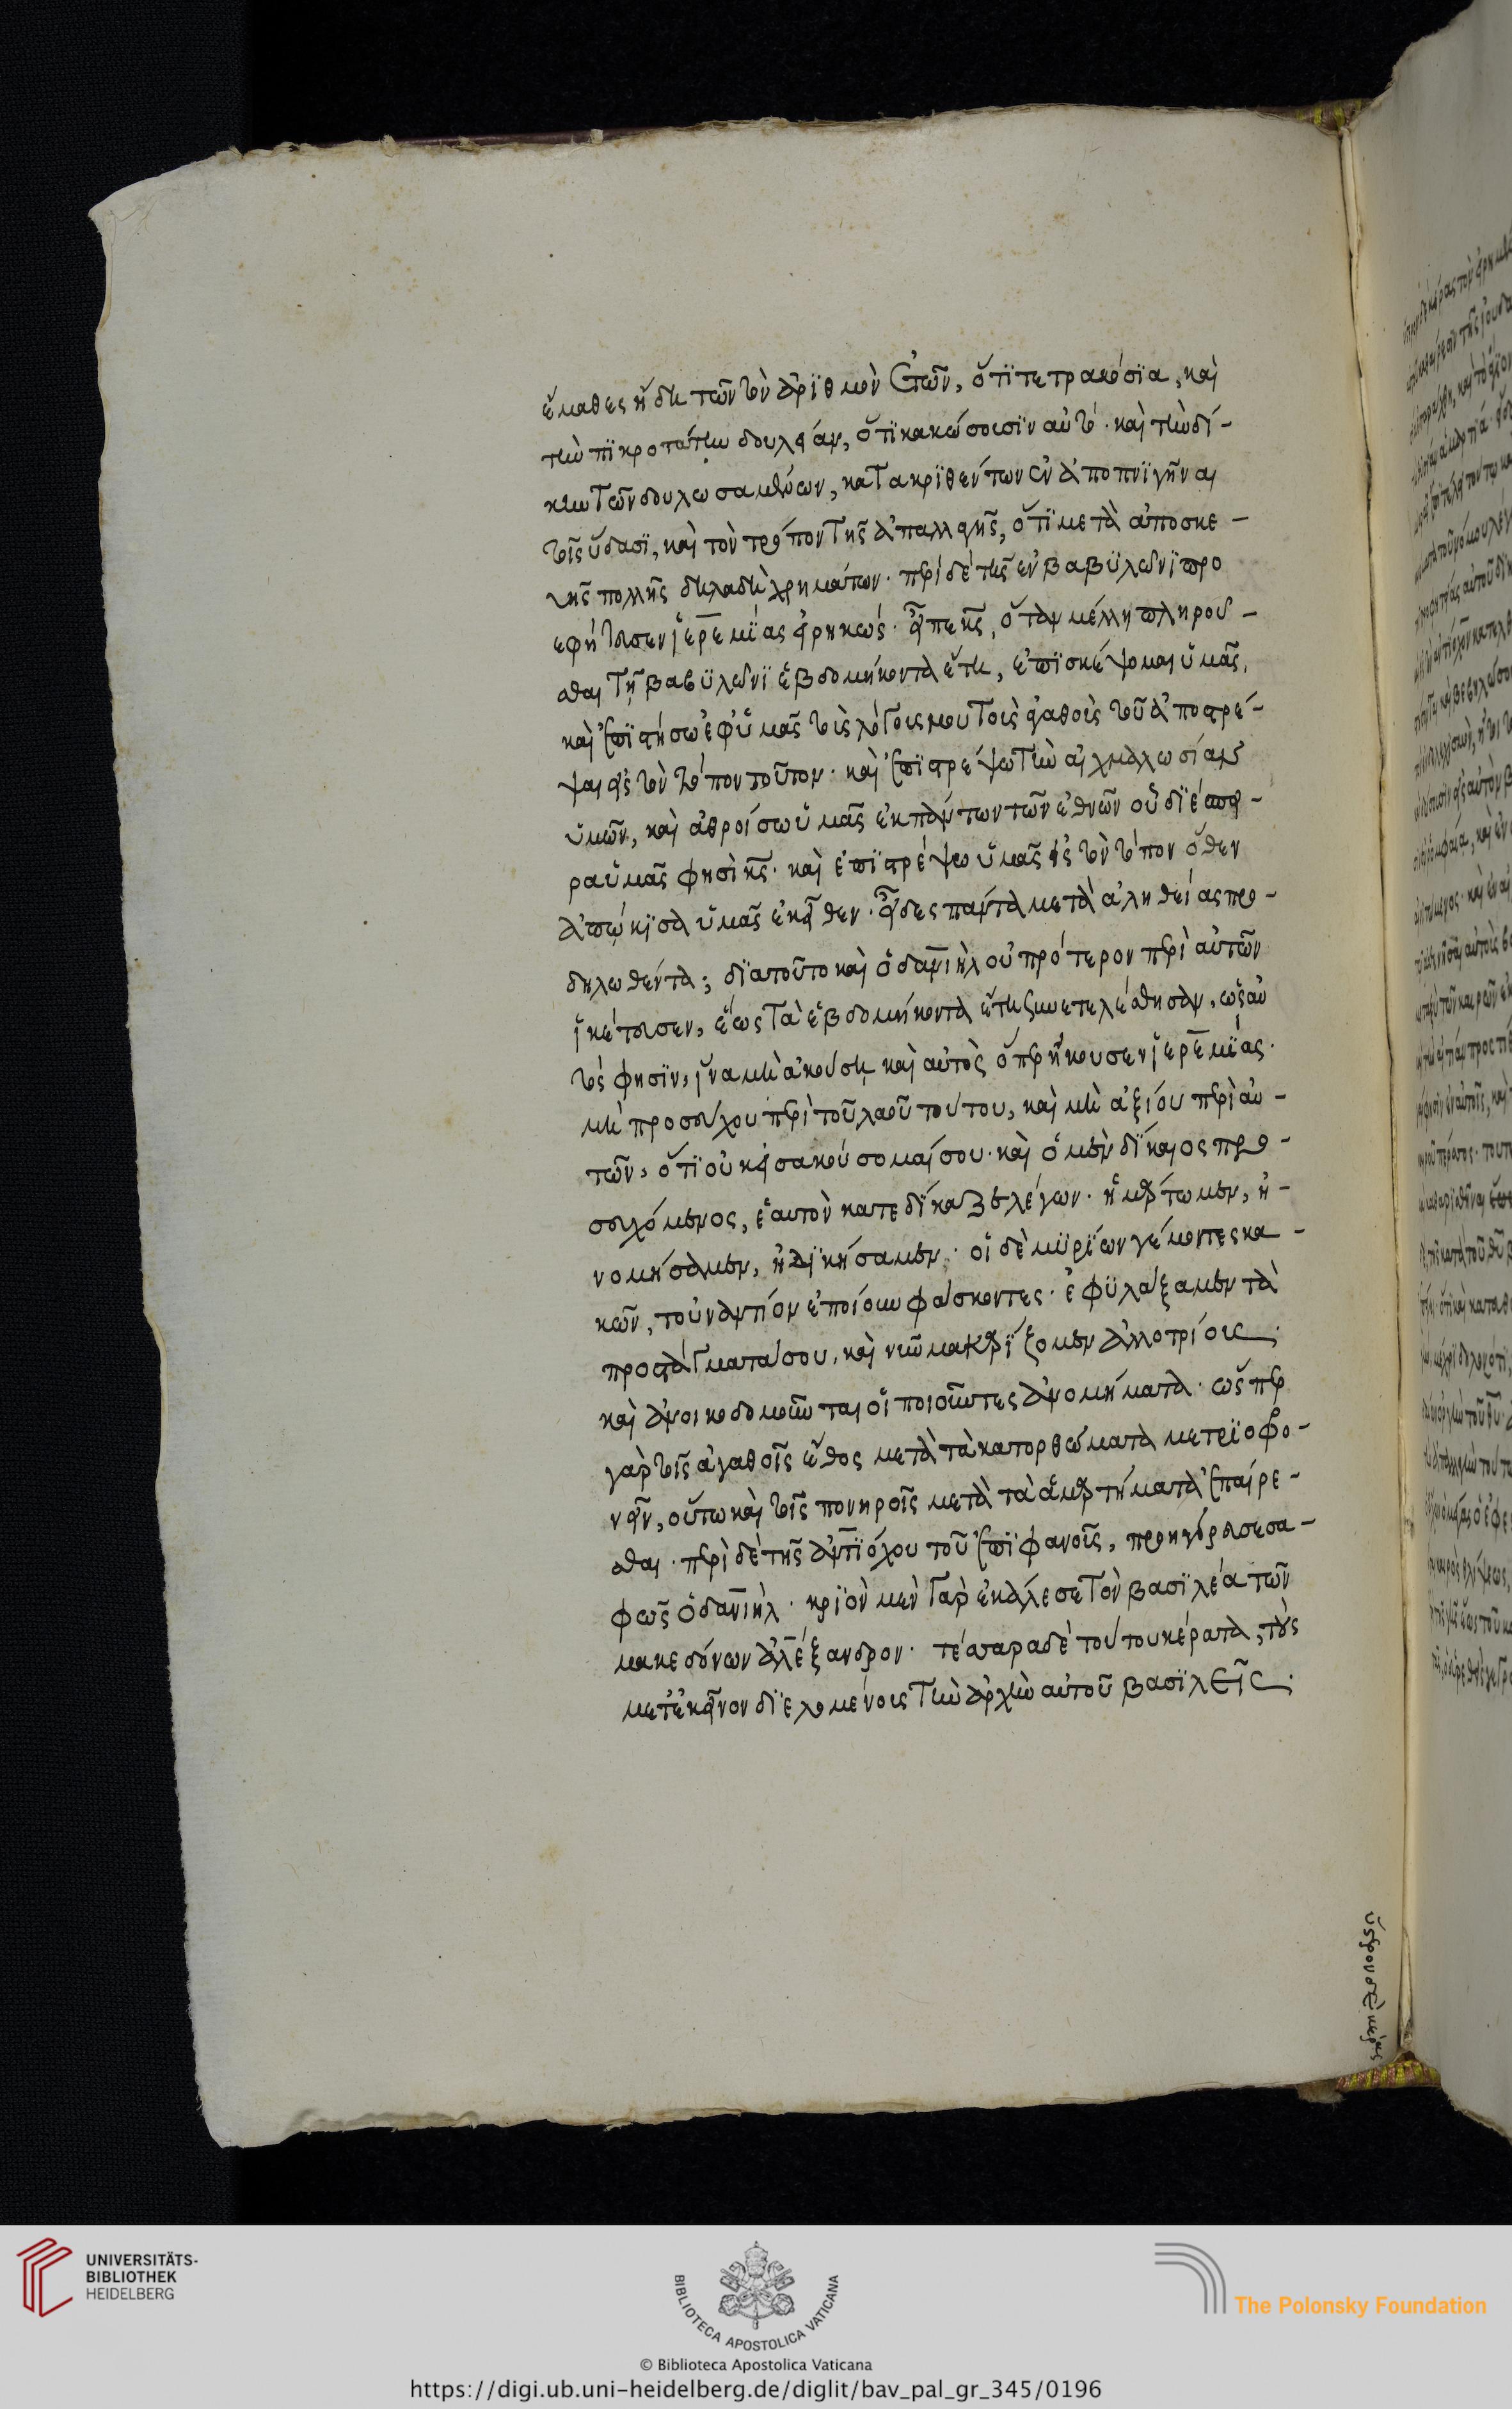 ἔμαθες ἤδη τῶν τὸν ἀριθμὸν ἐτῶν, ὅτι τετρακόσια, καὶ
τὴν πικροτάτην δουλείαν, ὅτι κακώσουσιν αὐτό· καὶ τὴν δί-
κην τῶν δουλωσαμένων, κατακριθέντων ἐν ἀποπνιγῆναι
τοῖς ὕδασι, καὶ τὸν τρόπον τῆς ἀπαλλαγῆς, ὅτι μετὰ ἀποσκε-
υῆς πολλῆς δηλαδὴ χρημάτων· περὶ δὲ τῆς ἐν βαβυλῶνι προ
εφήτευσεν ἱερεμίας εἰρηκώς· εἶπε κς, ὅταν μέλλῃ πληροῦ-
σθαι τῇ βαβυλῶνι ἑβδομήκοντα ἔτη, ἐπισκέψομαι ὑμᾶς,
καὶ ἐπιστήσω ἐφ ὑμᾶς τοὺς λόγους μου τοὺς ἀγαθοὺς τοῦ ἀποστρέ-
ψαι εἰς τὸν τόπον τοῦτον· καὶ ἐπιστρέψω τὴν αἰχμαλωσίαν
ὑμῶν, καὶ ἀθροίσω ὑμᾶς ἐκ πάντων τῶν ἐθνῶν οὗ διέσπει-
ρα ὑμᾶς φησὶ κς· καὶ ἐπιστρέψω ὑμᾶς εἰς τὸν τόπον ὅθεν
ἀπῴκισα ὑμᾶς ἐκεῖθεν· εἶδες πάντα μετὰ ἀληθείας προ-
δηλωθέντα; διατοῦτο καὶ ὁ δανιὴλ οὐ πρότερον περὶ αὐτῶν
ἱκέτευσεν, ἕως τὰ ἑβδομήκοντα ἔτη συνετελέσθησαν, ὡς αὐ
τός φησιν, ἵνα μὴ ἀκούσῃ καὶ αὐτὸς ὅπερ ἤκουσεν ἱερεμίας·
μὴ προσεύχου περὶ τοῦ λαοῦ τούτου, καὶ μὴ ἀξίου περὶ αὐ-
τῶν, ὅτι οὐκ εἰσακούσομαί σου· καὶ ὁ μὲν δίκαιος προ-
σευχόμενος, ἑαυτὸν κατεδίκαζε λέγων· ἡμάρτομεν, ἠ-
νομήσαμεν, ἠδικήσαμεν· οἱ δὲ μυρίων γέμοντες κα-
κῶν, τοὐναντίον ἐποίουν φάσκοντες· ἐφυλάξαμεν τὰ
προστάγματά σου, καὶ νῦν μακαρίζομεν ἀλλοτρίους·
καὶ ἀνοικοδομοῦνται οἱ ποιοῦντες ἀνομήματα· ὥσπερ
γὰρ τοῖς ἀγαθοῖς ἔθος μετὰ τὰ κατορθώματα μετριοφρο-
νεῖν, οὕτω καὶ τοῖς πονηροῖς μετὰ τὰ ἁμαρτήματα ἐπαίρε-
σθαι· περὶ δὲ τῆς ἀντιόχου τοῦ ἐπιφανοῦς, προηγόρευσε σα-
φῶς ὁ δανιήλ· κριὸν μὲν γὰρ ἐκάλεσε τὸν βασιλέα τῶν
μακεδόνων ἀλέξανδρον· τέσσαρα δὲ τούτου κέρατα, τοὺς
μετ ἐκεῖνον διελομένους τὴν ἀρχὴν αὐτοῦ βασιλεῖς·
UNIVERSITÄTS-
BIBLIOTHEK
HEIDELBERG
BIBLIOTECA APOSTOLICA VATICANA
© Biblioteca Apostolica Vaticana
The Polonsky Foundation
https://digi.ub.uni-heidelberg.de/diglit/bav_pal_gr_345/0196